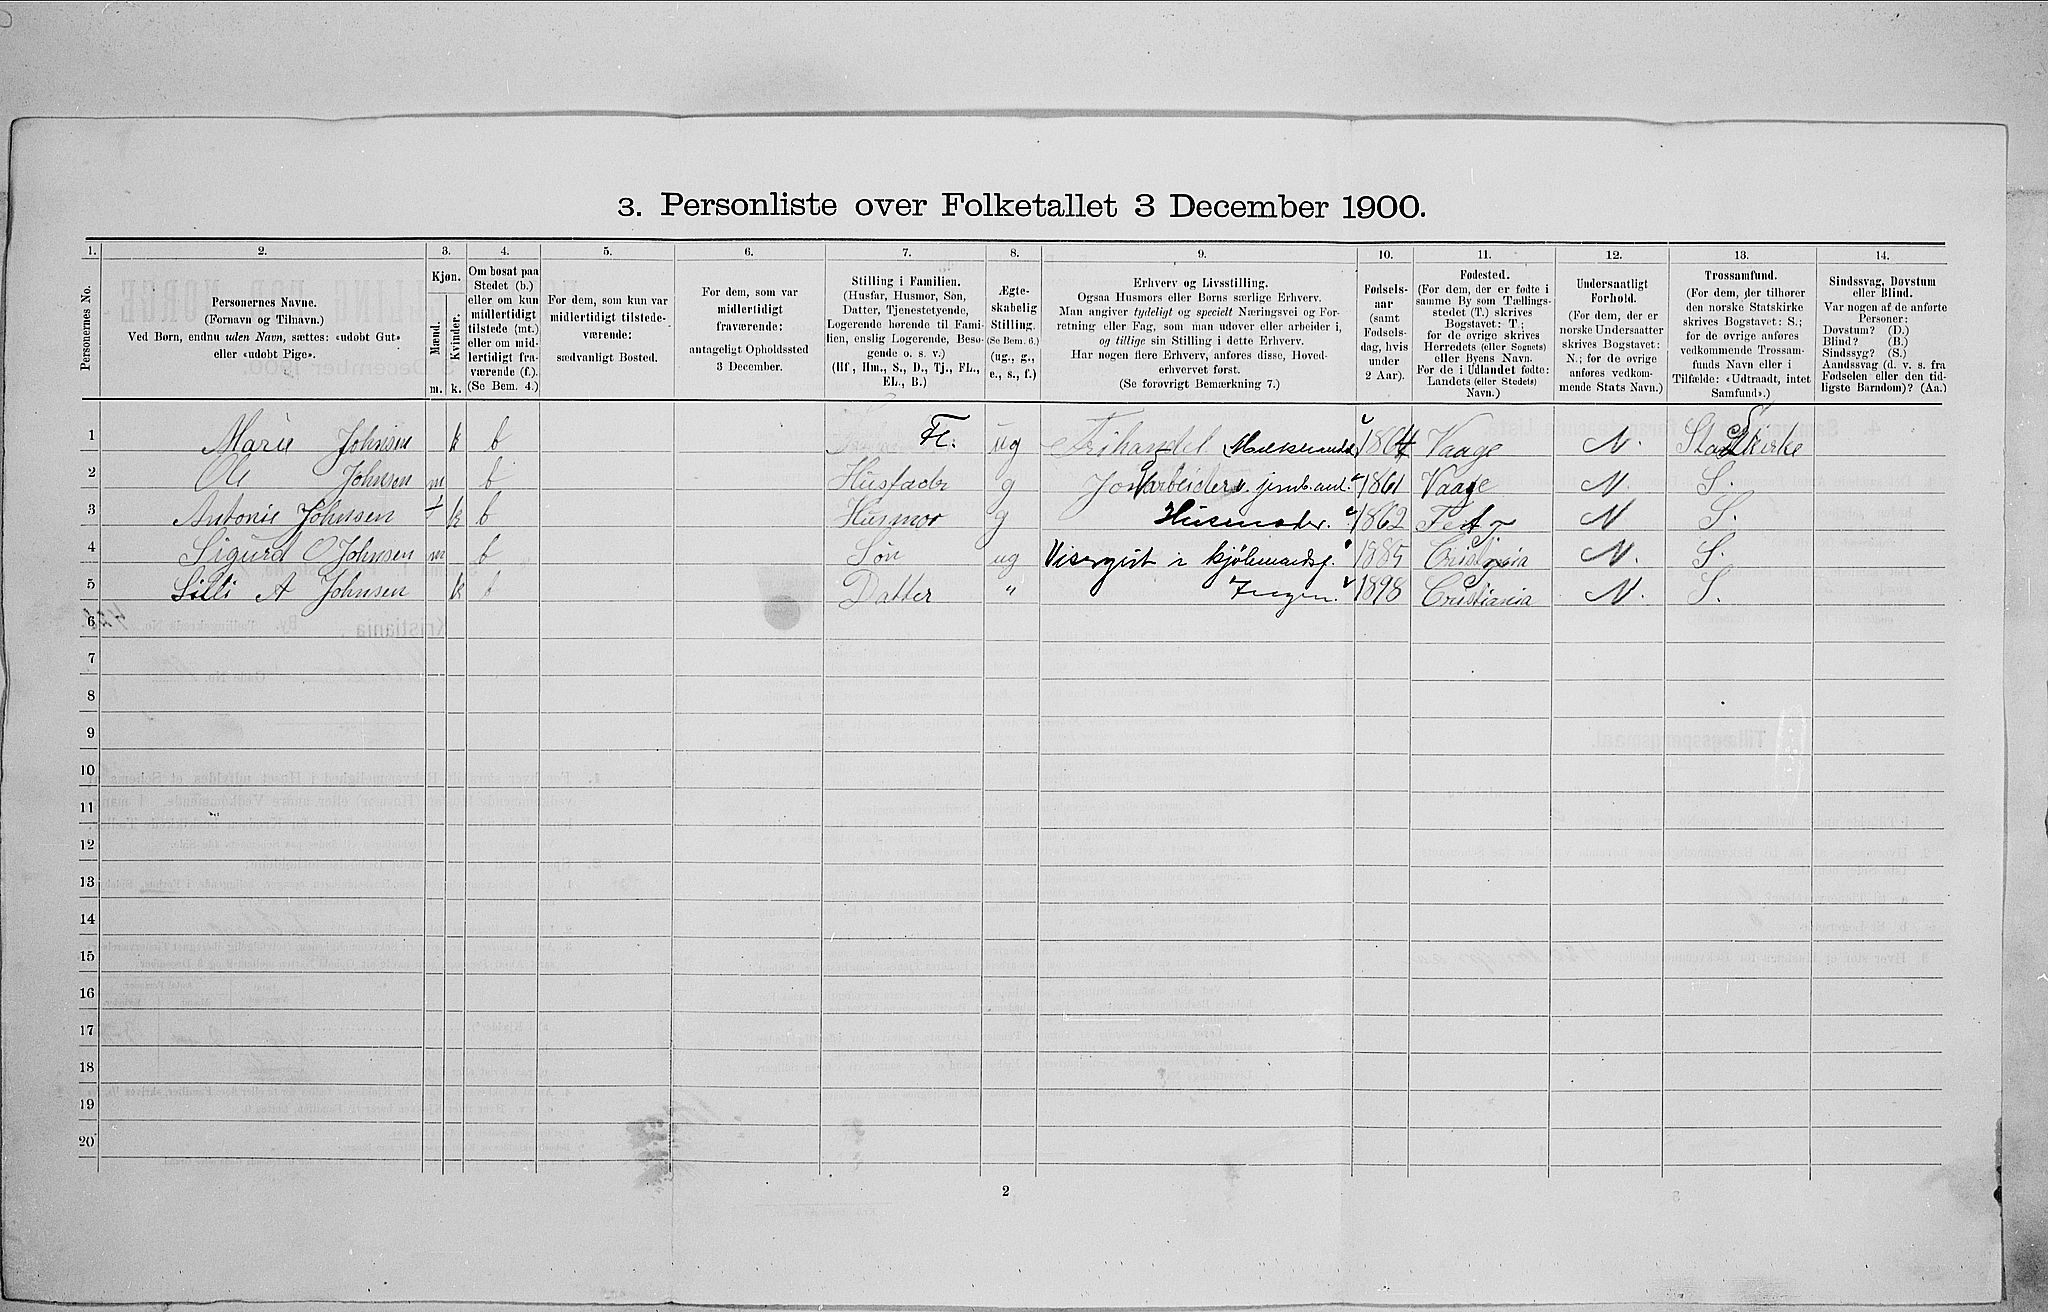 3. Personliste over Folketallet 3 December 1900.
1. 2. 3. 4. 5. 6. 7. 8. 9. 10. 11. 12. 13. 14.
Personernes No.
Personernes Navne.
(Fornavn og Tilnavn.)
Ved Børn, endnu uden Navn, sættes: «udøbt Gut»
eller «udøbt Pige».
Kjøn.
Mænd.
Kvinder.
m. k.
Om bosat paa
Stedet (b.)
eller om kun
midlertidigt
tilstede (mt.)
eller om mid-
lertidigt fra-
værende (f.).
(Se Bem. 4.)
For dem, som kun var
midlertidigt tilstede-
værende:
sædvanligt Bosted.
For dem, som var
midlertidigt
fraværende:
antageligt Opholdssted
3 December.
Stilling i Familien.
(Husfar, Husmor, Søn,
Datter, Tjenestetyende,
Logerende hørende til Fami-
lien, enslig Logerende, Besø-
gende o. s. v.)
(Hf, Hm., S., D., Tj., FL.,
EL., B.)
Ægte-
skabelig
Stilling.
(Se Bem. 6.)
(ug., g.,
e., s., f.)
Erhverv og Livsstilling.
Ogsaa Husmors eller Børns særlige Erhverv.
Man angiver tydeligt og specielt Næringsvei og For-
retning eller Fag, som man udøver eller arbeider i,
og tillige sin Stilling i dette Erhverv.
Har nogen flere Erhverv, anføres disse, Hoved-
erhvervet først.
(Se forøvrigt Bemærkning 7.)
Fødsels-
aar
(samt
Fødsels-
dag, hvis
under
2 Aar).
Fødested.
(For dem, der er fødte i
samme By som Tællings-
stedet (T.) skrives
Bogstavet: T;
for de øvrige skrives
Herredets (eller Sognets)
eller Byens Navn.
For de i Udlandet fødte:
Landets (eller Stedets)
Navn.)
Undersaatligt
Forhold.
(For dem, der er
norske Undersaatter
skrives Bogstavet:
N.; for de øvrige
anføres vedkom-
mende Stats Navn.)
Trossamfund.
(For dem, der tilhører
den norske Statskirke
skrives Bogstavet: S.;
for de øvrige anføres
vedkommende Trossam-
funds Navn eller i
Tilfælde: «Udtraadt, intet
Samfund».)
Sindssvag, Døvstum
eller Blind.
Var nogen af de anførte
Personer:
Døvstum? (D.)
Blind? (B.)
Sindssyg? (S.)
Aandssvag (d. v. s. fra
Fødselen eller den tid-
ligste Barndom)? (Aa.)
1 Marie Johnsen k b FL. ug Frihandel 1864 Vaage N. Statskirke
2 Ole Johnsen m b Husfader g 1861 Vaage N. S.
3 Antonie Johnsen k b Husmor g Husmoder. 1862 N S.
4 Sigurd O Johnsen m b Søn ug Visergut i kjølmandsf. 1885 Cristiania N. S.
5 Silli A Johnsen k b Datter " Ingen. 1898 Cristiania N. S.
6
7
8
9
10
11
12
13
14
15
16
17
18
19
20
2